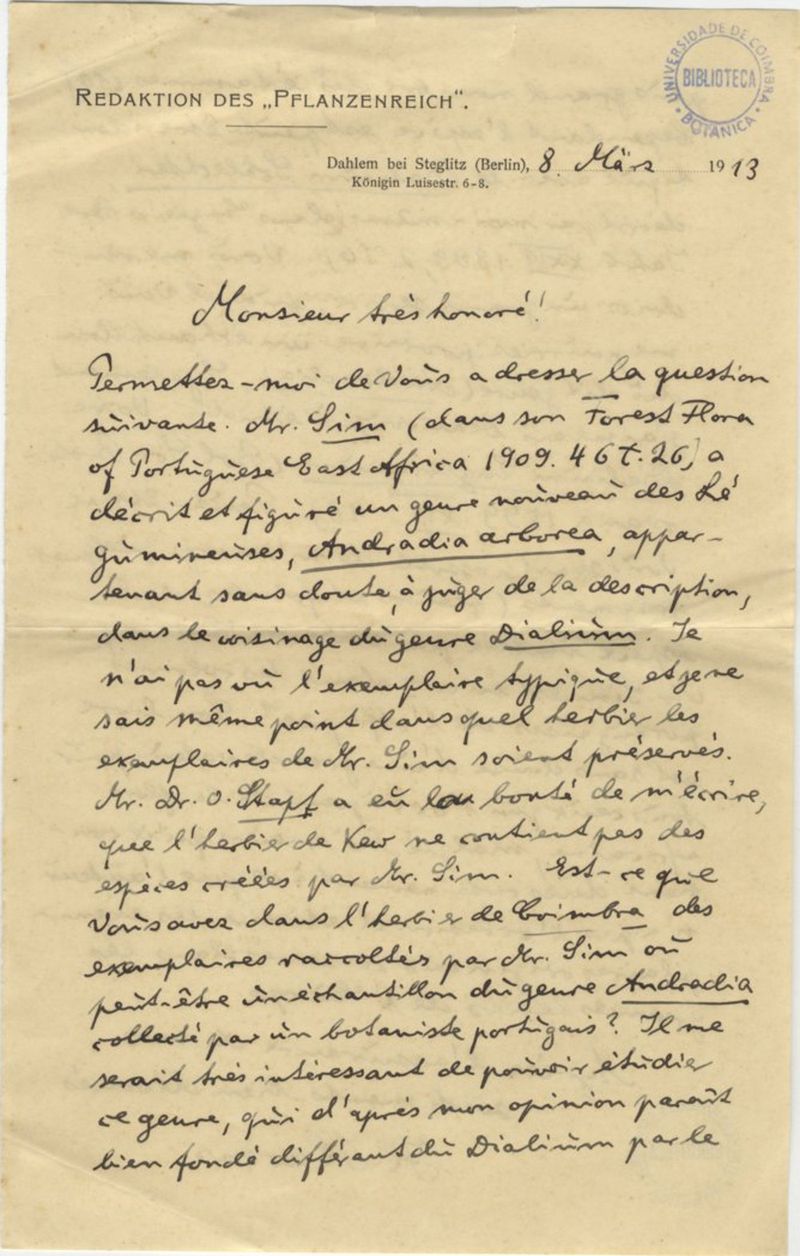 REDAKTION DES „PFLANZENREICH“.
UNIVERSIDADE DE COIMBRA
BIBLIOTECA
BOTANICA
Dahlem bei Steglitz (Berlin), 8. März 1913
Königin Luisestr. 6-8.
Monsieur très honoré!
Permettez-moi de Vous adresser la question
suivante. Mr. Sim (dans son Forest Flora
of Portuguese East Africa 1909. 46 t. 26) a
décrit et figuré un genre nouveau des Lé
gumineuses, Andradia arborea, appar-
tenant sans doute, à juger de la description,
dans le voisinage du genre Dialium. Je
n'ai pas vu l'exemplaire typique, et je ne
sais même point dans quel herbier les
exemplaires de Mr. Sim soient préservés.
Mr. Dr. O. Stapf a eu la bonté de m'écrire,
que l'herbier de Kew ne contient pas des
espèces créées par Mr. Sim. Est-ce que
Vous avez dans l'herbier de Coimbra des
exemplaires raccoltés par Mr. Sim ou
peut-être un échantillon du genre Andradia
collecté par un botaniste portugais? Il me
serait très intéressant de pouvoir étudier
ce genre, qui d'après mon opinion paraît
bien fondé différant du Dialium par le